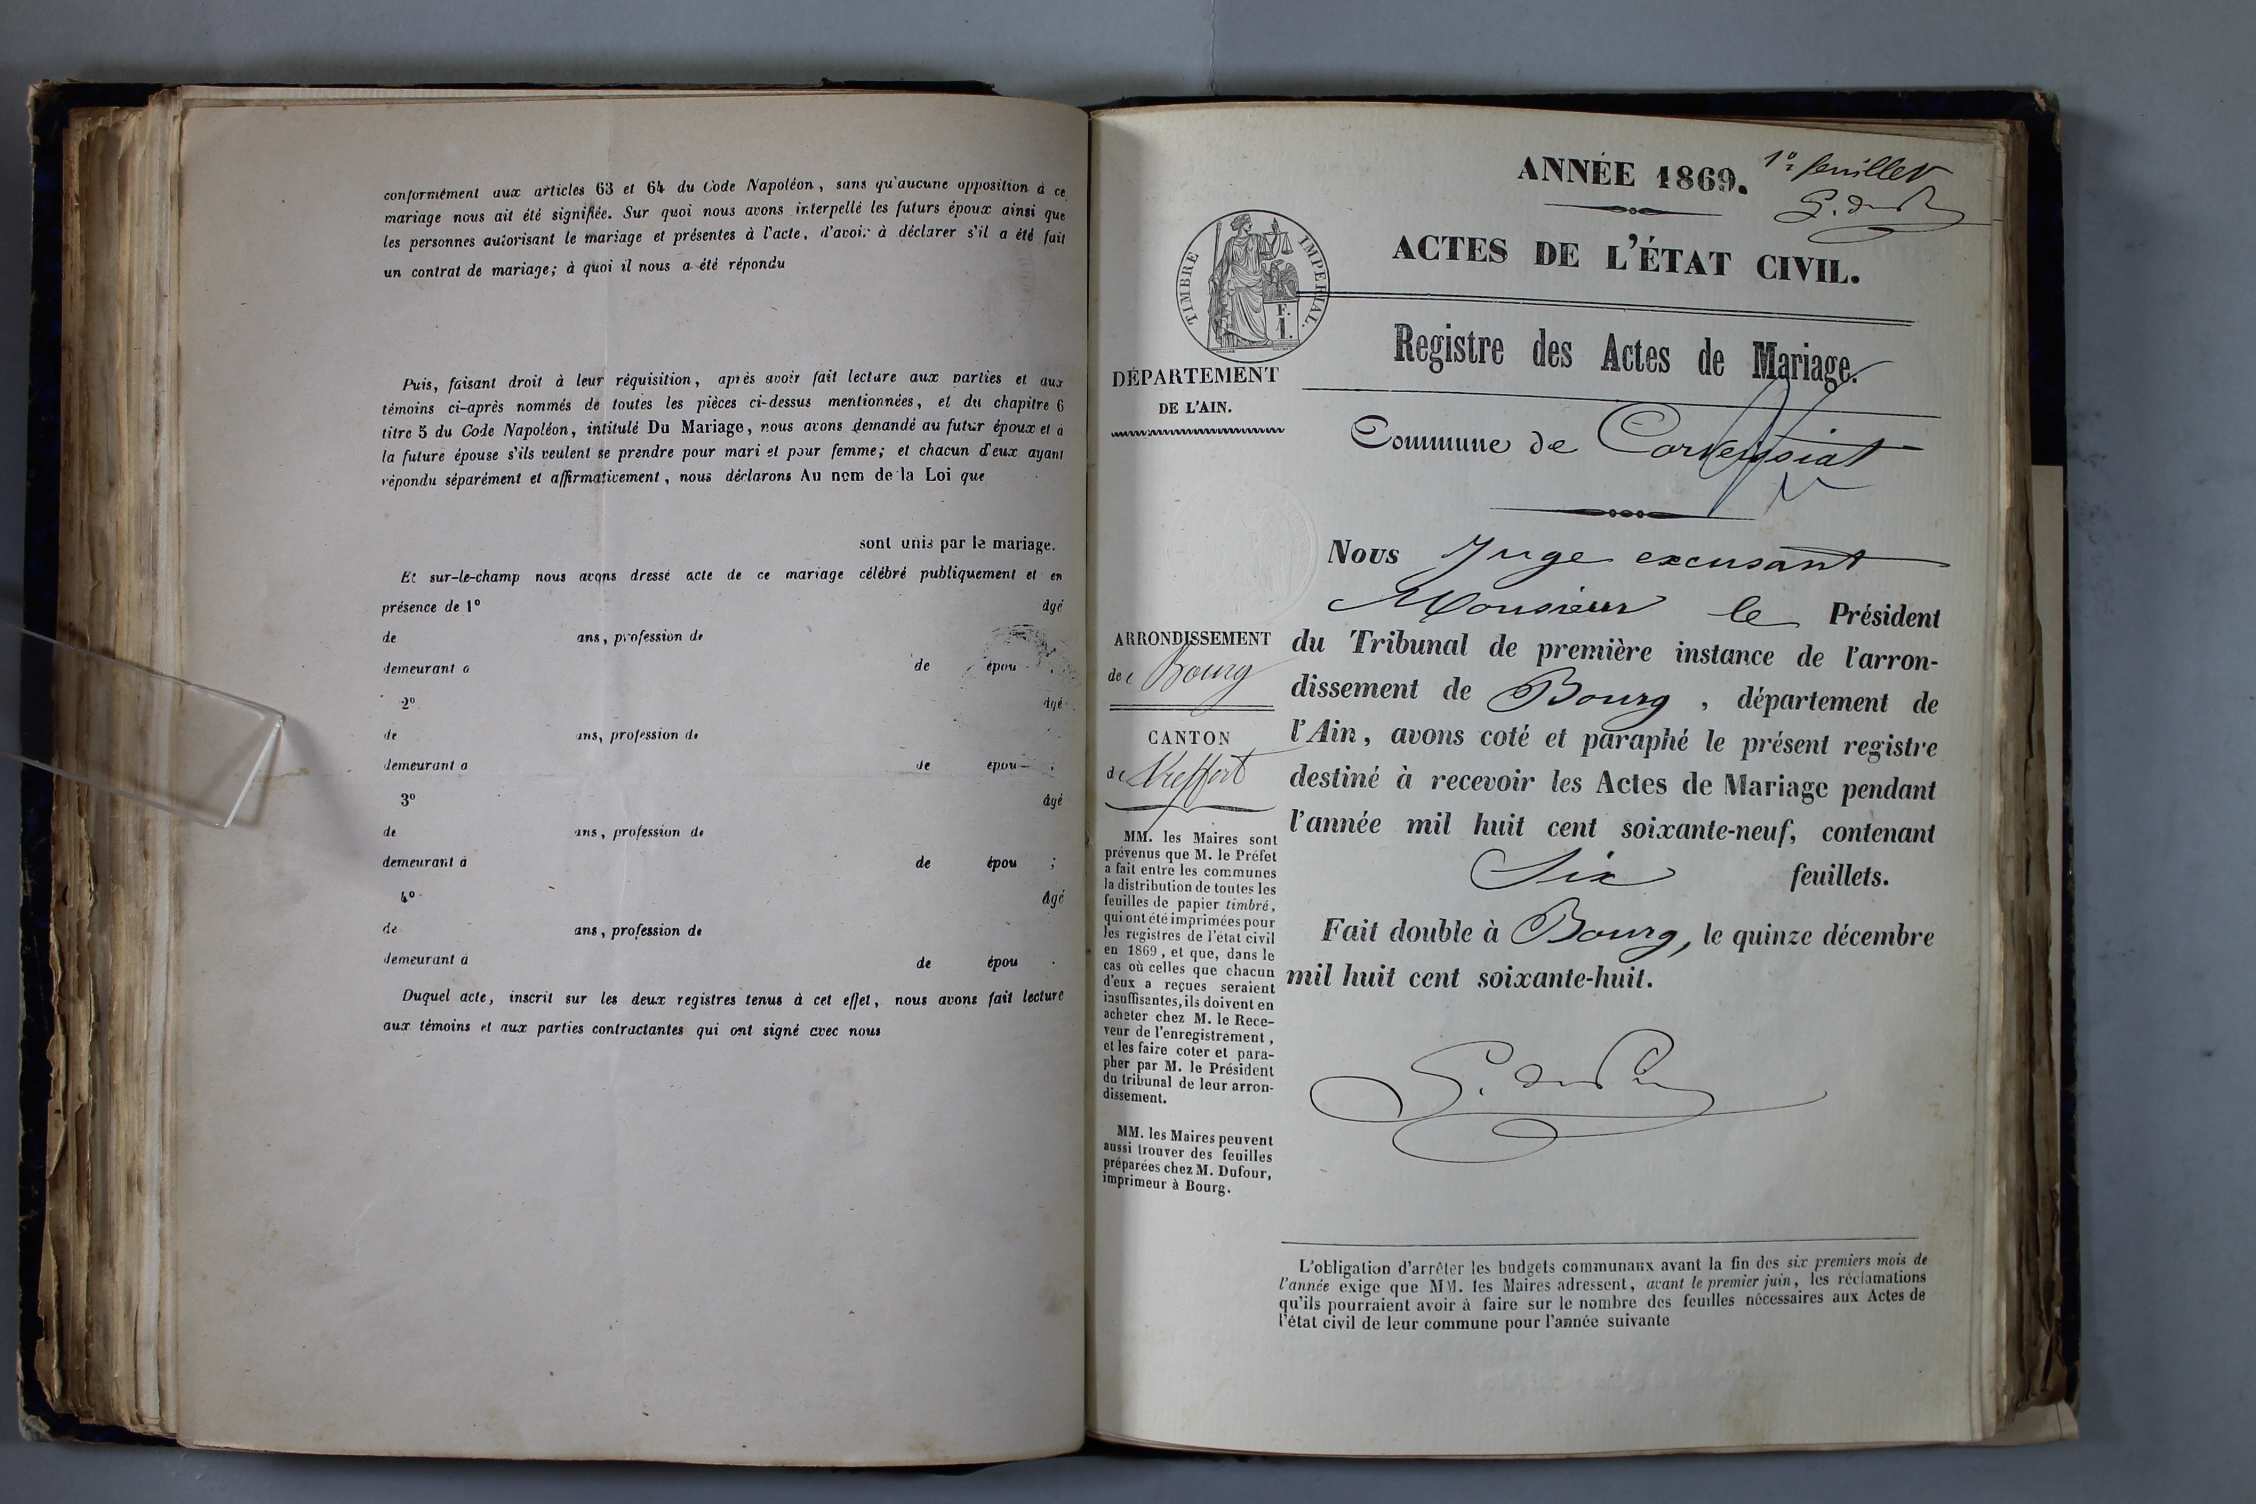 conformément aux articles 63 et 64 du Code Napoléon, sans qu'aucune opposition à ce
mariage nous ait été signifiée. Sur quoi nous avons interpellé les futurs époux ainsi que
les personnes autorisant le mariage et présentes à l'acte, d'avoir à déclarer s'il a été fait
un contrat de mariage; à quoi il nous a été répondu
Puis, faisant droit à leur réquisition, après avoir fait lecture aux parties et aux
témoins ci-après nommés de toutes les pièces ci-dessus mentionnées, et du chapitre 6
titre 5 du Code Napoléon, intitulé Du Mariage, nous avons demandé au futur époux et à
la future épouse s'ils veulent se prendre pour mari et pour femme; et chacun d'eux ayant
répondu séparément et affirmativement, nous déclarons Au nom de la Loi que
sont unis par le mariage.
Et sur-le-champ nous avons dressé acte de ce mariage célébré publiquement et en
présence de 1º âgé
de ans, profession de
demeurant à de épou .
2º âgé
de ans, profession de
demeurant à de épou ;
3º âgé
de ans, profession de
demeurant à de épou ;
4º âgé
de ans, profession de
demeurant à de épou .
Duquel acte, inscrit sur les deux registres tenus à cet effet, nous avons fait lecture
aux témoins et aux parties contractantes qui ont signé avec nous
1er feuillet
ANNÉE 1869.
ACTES DE L'ÉTAT CIVIL.
TIMBRE IMPERIAL.
F. 1.
Registre des Actes de Mariage.
Commune de Corveissiat
DÉPARTEMENT
DE L'AIN.
ARRONDISSEMENT
de Bourg
CANTON
de Treffort
MM. les Maires sont
prévenus que M. le Préfet
a fait entre les communes
la distribution de toutes les
feuilles de papier timbré,
qui ont été imprimées pour
les registres de l'état civil
en 1869, et que, dans le
cas où celles que chacun
d'eux a reçues seraient
insuffisantes, ils doivent en
acheter chez M. le Rece-
veur de l'enregistrement,
et les faire coter et para-
pher par M. le Président
du tribunal de leur arron-
dissement.
MM. les Maires peuvent
aussi trouver des feuilles
préparées chez M. Dufour,
imprimeur à Bourg.
Nous Juge excusant
Monsieur le Président
du Tribunal de première instance de l'arron-
dissement de Bourg, département de
l'Ain, avons coté et paraphé le présent registre
destiné à recevoir les Actes de Mariage pendant
l'année mil huit cent soixante-neuf, contenant
Six feuillets.
Fait double à Bourg, le quinze décembre
mil huit cent soixante-huit.
L'obligation d'arrêter les budgets communaux avant la fin des six premiers mois de
l'année exige que MM. les Maires adressent, avant le premier juin, les réclamations
qu'ils pourraient avoir à faire sur le nombre des feuilles nécessaires aux Actes de
l'état civil de leur commune pour l'année suivante